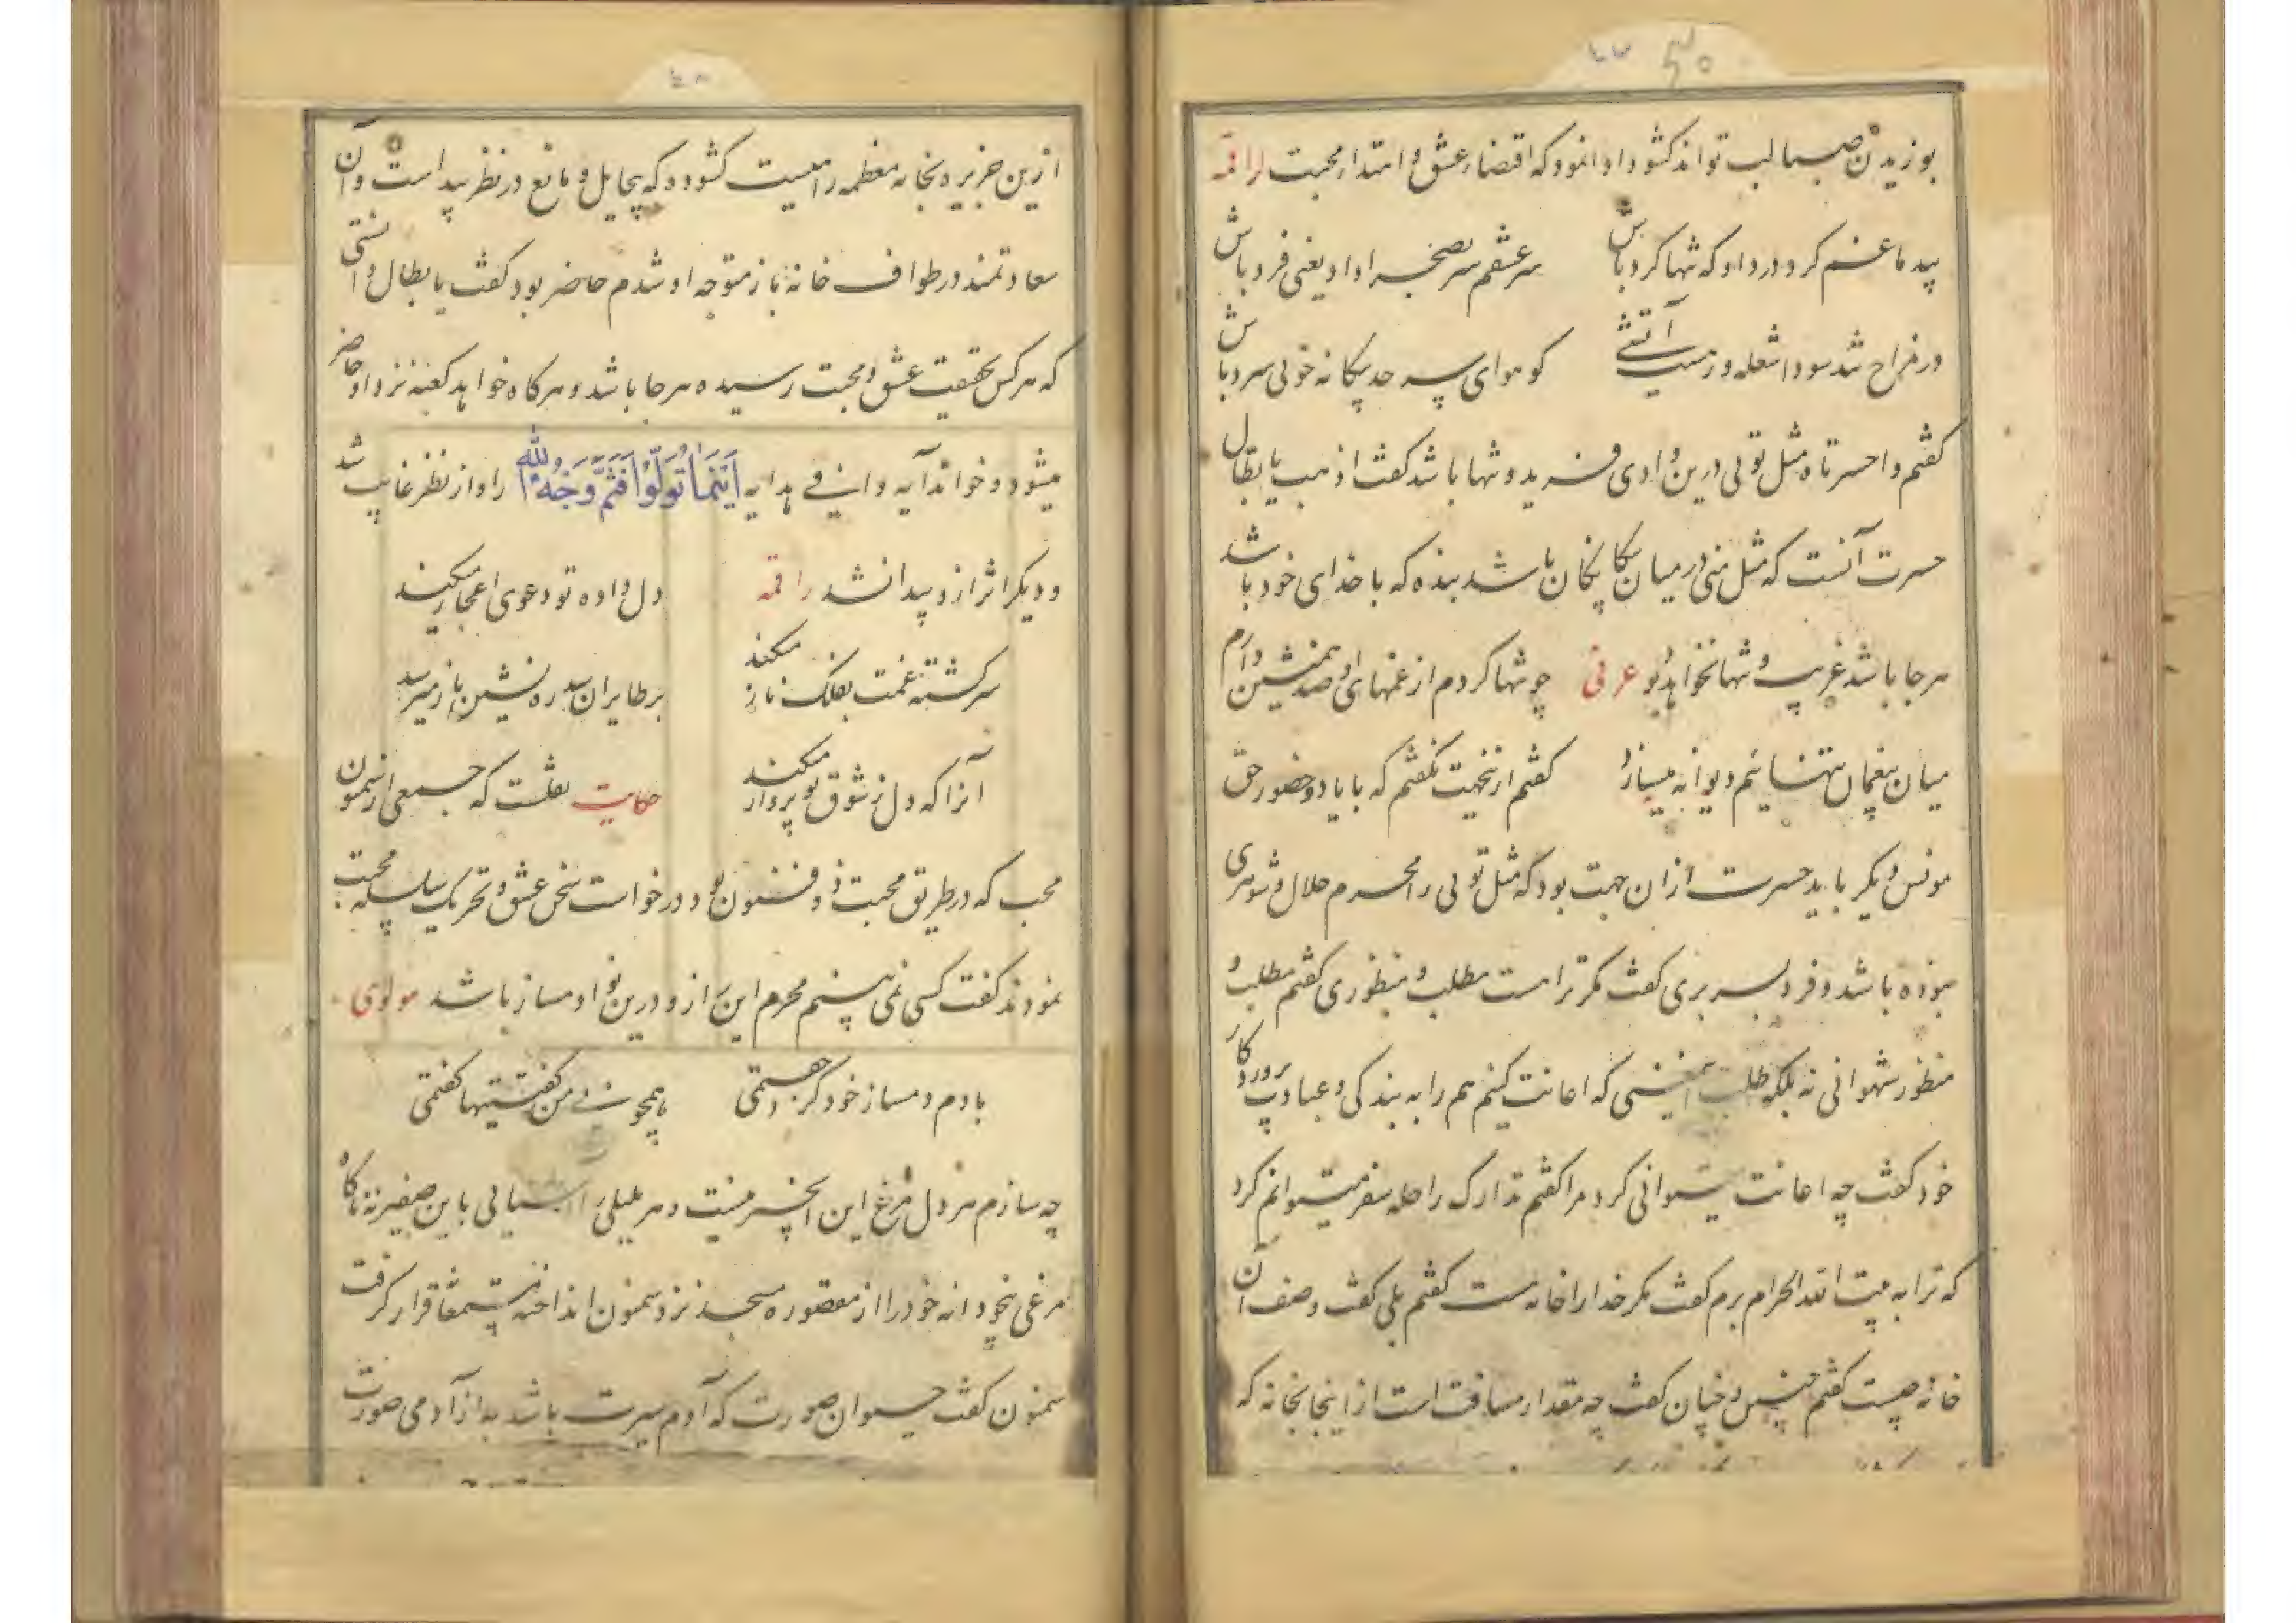 بوزیدن صبا لب تواند کشود و ادا نمود که اقتضاء عشق و ابتداء محبت لراقمه
پیدا غم کرد و در داد که تنها کرد باش سر عشقم سر بصحرا داد یعنی فرد باش
در مزاج شد سودا شعله ور آتشی کو هوای سرد بیکانه خوئی سرد باش
کفتم واحسرتاه مثل توئی درین وادی فرید و تنها باشد کفت اذهب یا بطال
حسرت آنست که مثل منی در میان بیکانکان باشد بنده که با خدای خود باشد
هر جا باشد غریب و تنها نخواهد بود عرفی چو تنها کردم از غمهای او صد همنشین دارم
میان بیغمان تنهانیم دیوانه میسازد کفتم ازینجهت نکفتم که با یاد و حضور حق
مونس دیکر باید حسرت از ان جهت بود که مثل توئی را محرم حلال و شوهری
نبوده باشد و فرد بسر بری کفت مکر تراست مطلب و منظوری کفتم مطلب و
منظور شهوانی نه بلکه طلب همنشینی که اعانت کنیم هم را به بندکی و عبادت پروردکار
خود کفت چه اعانت میتوانی کرد مرا کفتم تدارک راحله سفر میتوانم کرد
که ترا به بیت الله الحرام برم کفت مکر خدا را خانه هست کفتم بلی کفت وصف آن
خانه چیست کفتم چنین و چنان کفت چه مقدار مسافت است از اینجا بخانه که
از این جزیره بخانه معظمه راهیست کشود که بیحایل و مانع در نظر پیداست و آن
سعادتمند در طواف خانه باز متوجه او شدم حاضر بود کفت یا بطال دانستی
که هر کس بحقیقت عشق و محبت رسیده هر جا باشد و هرکاه خواهد کعبه نزد او حاضر
میشود و خواند آیه وافی هدایه اَیْنَمَا تُوَلُّوْا فَثَمَّ وَجْهُ اللّٰهِ را و از نظر غایب شد
و دیکر اثر ازو پیدا نشد راقمه دل داده تو دعوی اعجاز میکند
سرکشته غمت بفلک ناز میکند بر طایران سدره نشین باز میرسد
آنرا که دل ز شوق تو پرواز میکند حکایت نقلست که جمعی از سمنون
محب که در طریق محبت ذوفنون بود درخواست سخن عشق و تحریک سلسله محبت
نمودند کفت کسی نمی بینم محرم این راز و درین نوا دمساز باشد مولوی
با دم دمساز خود کر جفتمی همچو نی من کفتنیها کفتمی
چه سازم هر دل مرغ این انجیر نیست و هر بلبلی با این صفیر نه ناکاه
مرغی بیخودانه خود را از مقصوره مسجد نزد سمنون انداخته مستمعا قرار کرفت
سمنون کفت حیوان صورت که آدم سیرت باشد به از آدمی صورت